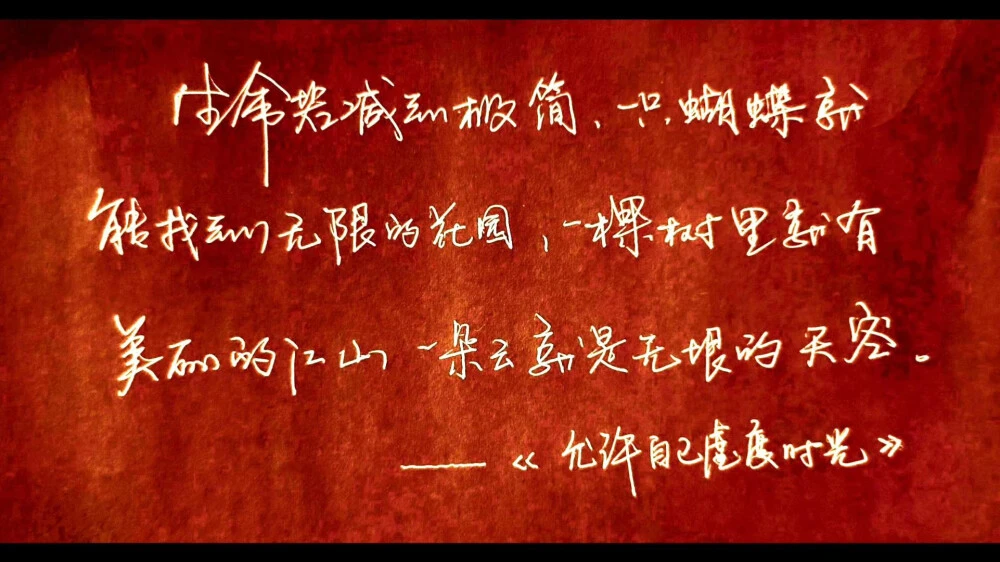 生命若减到极简、一只蝴蝶就
能找到无限的花园，一棵树里就有
美丽的江山 一朵云就是无垠的天空。
——《允许自己虚度时光》